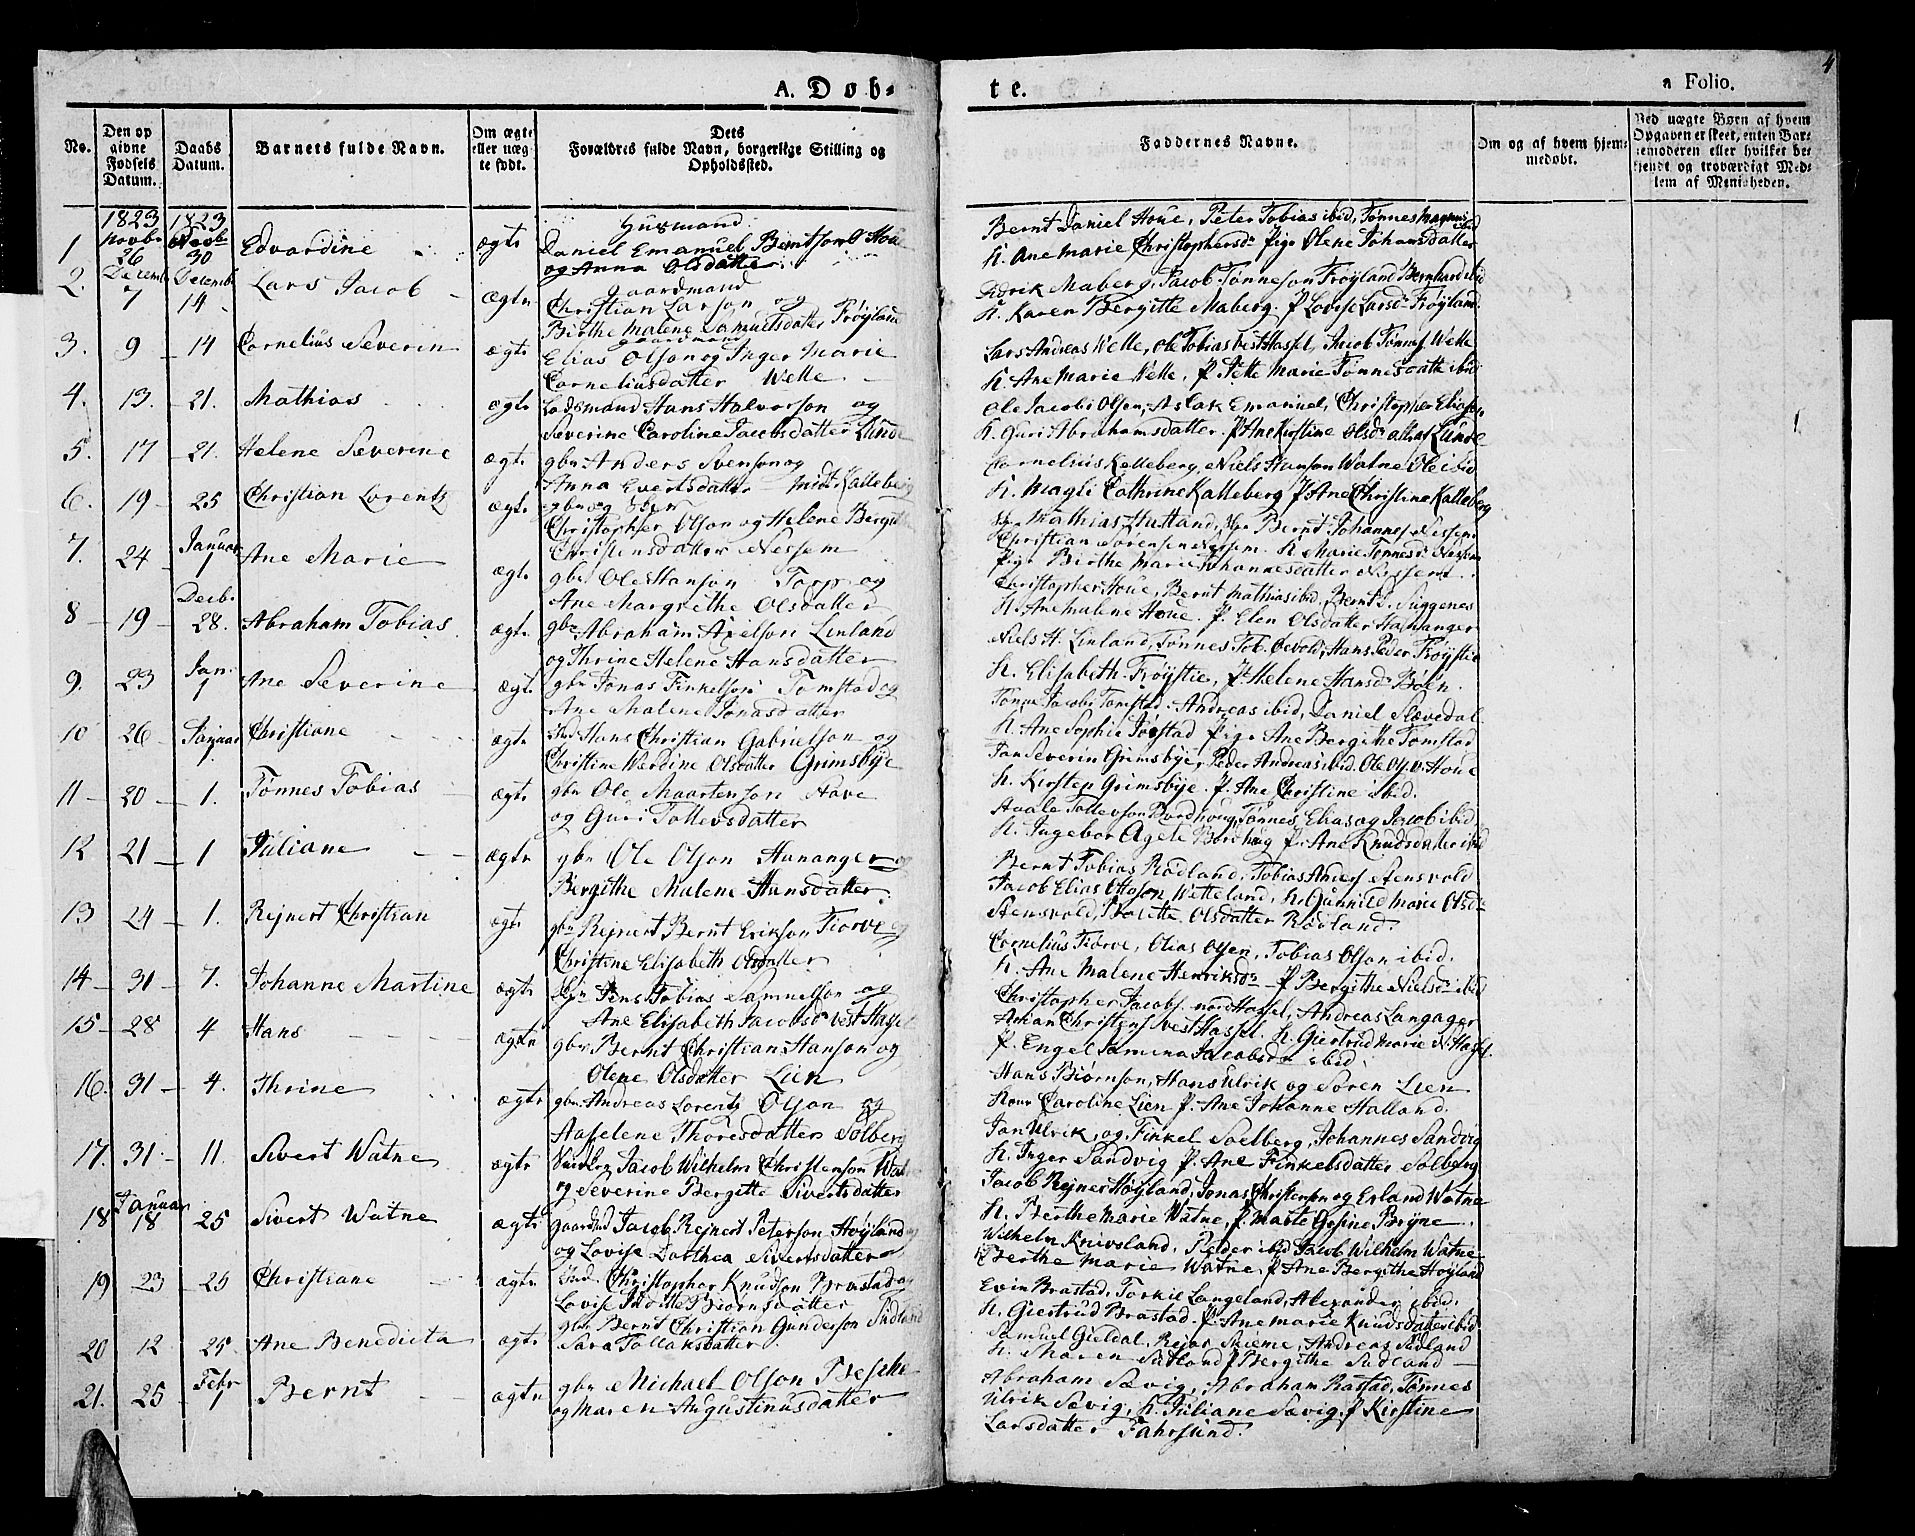 A. Døb-
te.
a Folio.
4
No.
Den op
givne
Fødsels
Datum.
Daabs
Datum.
Barnets fulde Navn.
Om ægte
eller uæg
te født.
Dets
Forældres fulde Navn, borgerlige Stilling og
Opholdssted.
Faddernes Navne.
Om og af hvem hjem-
medøbt.
Ved uægte Børn af hvem
Opgaven er skeet, enten Bar-
nemoderen eller hvilket be-
kjendt og troværdigt Med-
lem af Menigheden.
1823 1823
1 Novbr 26 Novb 30 Edvardine ægte
Husmand
Daniel Emanuel Berntson Houe
og Anna Olsdatter
Bernt Daniel Houe, Peter Tobias ibid, Tønnes Magnus ibid
K. Ane Marie Christophersdr Pige Olene Johansdatter
2. Decemb 7 Decemb 14 Lars Jacob ægte
Gaardmand
Christian Larson og
Birthe Malene Samuelsdatter Frøyland
Fidrik Maberg, Jacob Tønneson Frøyland Bernhard ibid
K. Karen Bergitte Maberg. P. Lovise Larsdr Frøyland
3. 9 14 Cornelius Severin ægte
gaardmand
Elias Olson og Inger Marie
Corneliusdatter Welle
Lars Andreas Welle, Ole Tobias Vesthassel, Jacob Tønnes Welle
K. Ane Marie Welle, P. Jette Marie Tønnesdattr ibid
4. 13. 21. Mathias ægte
Lodsmand Hans Halvorson og
Severine Caroline Jacobsdatter Lunde
Ole Jacobs Olsen, Aslak Emanuel, Christopher Eliason
K. Guri Abrahamsdatter. P. Ane Kirstine Olsdr alle af Lunde
5. 17 21. Helene Severine ægte
gbr Anders Svenson og
Anna Evertsdatter Midt Kalleberg
Cornelius Kalleberg, Niels Hanson Watne Ole ibid
K. Magli Cathrine Kalleberg P. Ane Christine Kalleberg
6. 19 25 Christian Lorentz ægte
Christopher Olson og Helene Bergitte
Christensdatter Nessem
Mathias Huseland, Bernt Johannes Nessem
Christian Sørensen Nessem. K. Marie Tønnesdr Nessem
Pige Birthe Marie Johannesdatter Nessem
7. 24 Januar 1 Ane Marie ægte
gbr Ole Hanson Tarp og
Ane Margrethe Olsdatter
Christopher Houe, Bernt Mathias ibid, Bernt J. Suggenes
K. Anemalene Houe. P. Elen Olsdatter Hananger
8 19 Decbr 28. Abraham Tobias ægte
gbr Abraham Axelson Linland
og Thrine Helene Hansdatter
Niels H. Linland, Tønnes Tob. Oevold, Hans Peder Frøystie
K. Elisabeth Frøystie, P. Helene Hansdr Bøen.
9. 23 Jan 1 Ane Severine ægte
gbr Jonas Finkelson Tomstad og
Ane Malene Jonasdatter
Tønnes Jacobs Tomstad. Andreas ibid, Daniel Slævedal.
K. Ane Sophie Jørstad Pige Ane Bergithe Tomstad
10 26 Januar 1 Christiane ægte
Hans Christian Gabrielson og
Christine Verdine Olsdatter Grimsbye
Jan Severin Grimsbye, Peder Andreas ibid. Ole Ols. v. Houe
K. Kirsten Grimsbye. P. Ane Christine ibid.
11 20 1. Tønnes Tobias ægte
gbr Ole Maartenson Have
og Guri Tollevsdatter
Tollevson Bordhoug, Tønnes, Elias og Jacob ibid
K. Ingebor Agete Bordhoug P. Ane Knudsdatter ibid
12 21 1 Juliane ægte
gbr Ole Olson Hananger og
Bergithe Malene Hansdatter
Bernt Tobias Rødland, Tobias Anders Stensvold
Jacob Elias Olson Wetteland, K. Gunnild Marie Olsdr
Stensvold, Olsdatter Rødland.
13 24 1. Rejnert Christian ægte
gbr Rejnert Bernt Erikson Tiørve og
Christine Elisabeth Olsdatter
Cornelius Tiørve, Olias Olsen, Tobias Olson ibid.
K. Ane Malene Henriksdr P. Bergithe Nielsdr ibid
14 31 7. Johanne Martine ægte
Jens Tobias Samuelson og
Ane Elisabeth Jacobsdr Vest Hassel
Christopher Jacobs. Nordhassel, Andreas Langager
Christens Vesthassel. K. Giertrud Marie N. Hassel.
P. Engel Samena Jacobsdr ibid
15 28 4 Hans ægte
gbr Bernt Christian Hanson og
Olene Olsdatter Lien
Hans Biørnson, Hans Ulrik og Søren Lien
Caroline Lien P. Ane Johanne Halland.
16. 31 4. Thrine ægte
gbr Andreas Lorentz Olson og
Aaselene Thoresdatter Solberg
Jan Ulrik, og Finkel Soelberg, Johannes Sandvig
K. Inger Sandvig P. Ane Finkelsdatter Solberg
17. 31. 11. Sivert Watne ægte
Jacob Wilhelm Christenson Watne
og Severine Bergitte Sivertsdatter
Jacob Rejner Høyland, Jonas Christenson og Erland Watne
K. Berthe Marie Watne, P. Marte Gesine Bryne
18 Januar 18 25 Sivert Watne ægte
Gaardmd Jacob Rejnert Peterson Høyland
og Lovise Dorthea Sivertsdatter
Wilhelm Knivsland, Peder ibid Jacob Wilhelm Watne
Berthe Marie Watne P. Ane Bergithe Høyland
19 23 25 Christiane ægte
Christopher Knudson Brastad og
Lovise Biørnsdatter
Evin Brastad, Torkil Langeland, Alexander ibid.
K. Giertrud Brastad. P. Ane Marie Knudsdatter ibid
20 12 25 Ane Benedicta ægte
gbr Bernt Christian Gunderson Sudland
Sara Tollaksdatter
Samuel Gieldal, Skieme, Andreas Sudland
K. Maren Sudland P. Bergithe Sudland
21. 25 Febr 1 Bernt ægte
gbr Michael Olson
og Maren Augustinusdatter
Abraham Sævig, Abraham Rastad, Tønnes
Ulrik Sævig, K. Juliane Sævig, P. Kirstine
Larsdatter Fahrsund.